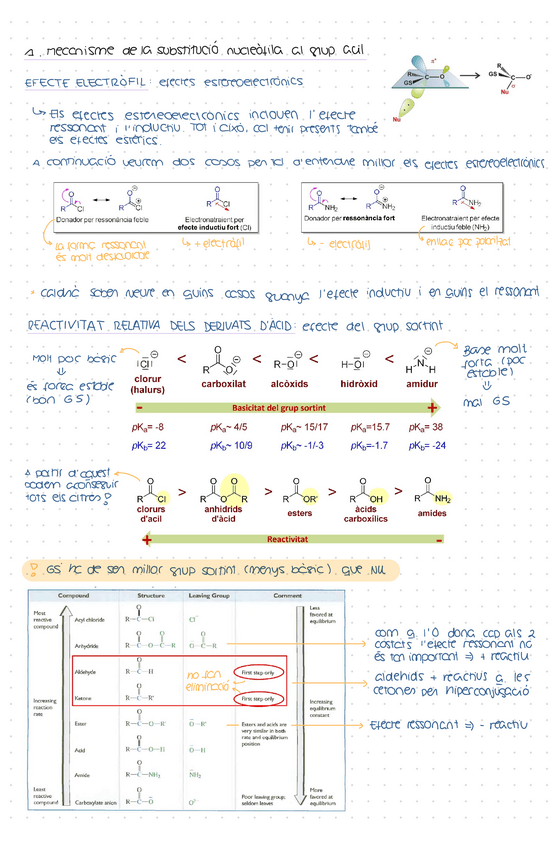 1. Mecanisme de la substitució nucleòfila al grup acil
EFECTE ELECTRÒFIL: efectes estereoelectrònics
π*
R
GS
C
O
Nu
R
GS
C
O
Nu
σ
↳ Els efectes estereoelectrònics inclouen l'efecte
ressonant i l'inductiu. Tot i això, cal tenir presents també
els efectes estèrics.
A continuació veurem dos casos per tal d'entendre millor els efectes estereoelectrònics.
O
R
Cl
O
R
Cl
O
R
Cl
Donador per ressonància feble
Electronatraient per
efecte inductiu fort (Cl)
O
R
NH2
O
R
NH2
O
R
NH2
Donador per ressonància fort
Electronatraient per efecte
inductiu feble (NH2)
la forma ressonant
és molt desfavorable
↳ + electròfil
↳ - electròfil
enllaç poc polaritzat
* caldrà saber veure en quins casos guanya l'efecte inductiu i en quins el ressonant
REACTIVITAT RELATIVA DELS DERIVATS D'ÀCID: efecte del grup sortint
Molt poc bàsic
⇓
és força estable
(bon GS)
Cl < R O O < R-O < H-O < H N H
clorur
(halurs)
carboxilat
alcòxids
hidròxid
amidur
Base molt
forta (poc
estable)
⇓
mal GS
- Basicitat del grup sortint +
pKa= -8 pKa~ 4/5 pKa~ 15/17 pKa=15.7 pKa= 38
pKb= 22 pKb~ 10/9 pKb~ -1/-3 pKb=-1.7 pKb= -24
A partir d'aquest
podem aconseguir
tots els altres!
R Cl > R O R > R OR' > R OH > R NH2
clorurs
d'acil
anhidrids
d'àcid
esters
àcids
carboxílics
amides
+ Reactivitat -
! GS ha de ser millor grup sortint (menys bàsic) que Nu
Compound Structure Leaving Group Comment
Most
reactive
compound
Acyl chloride R—C—Cl Cl⁻
Less
favored at
equilibrium
Anhydride R—C—O—C—R O—C—R
Aldehyde R—C—H First step only
no són
eliminació
Ketone R—C—R' First step only
Increasing
reaction
rate
Increasing
equilibrium
constant
Ester R—C—O—R' O—R' Esters and acids are
very similar in both
rate and equilibrium
position
Acid R—C—O—H O—H
Amide R—C—NH2 NH2
Least
reactive
compound
Carboxylate anion R—C—O O²⁻ Poor leaving group;
seldom leaves
More
favored at
equilibrium
com q l'O dona ccp als 2
costats l'efecte ressonant no
és tan important ⇒ + reactiu
aldehids + reactius q les
cetones per hiperconjugació
Efecte ressonant ⇒ - reactiu